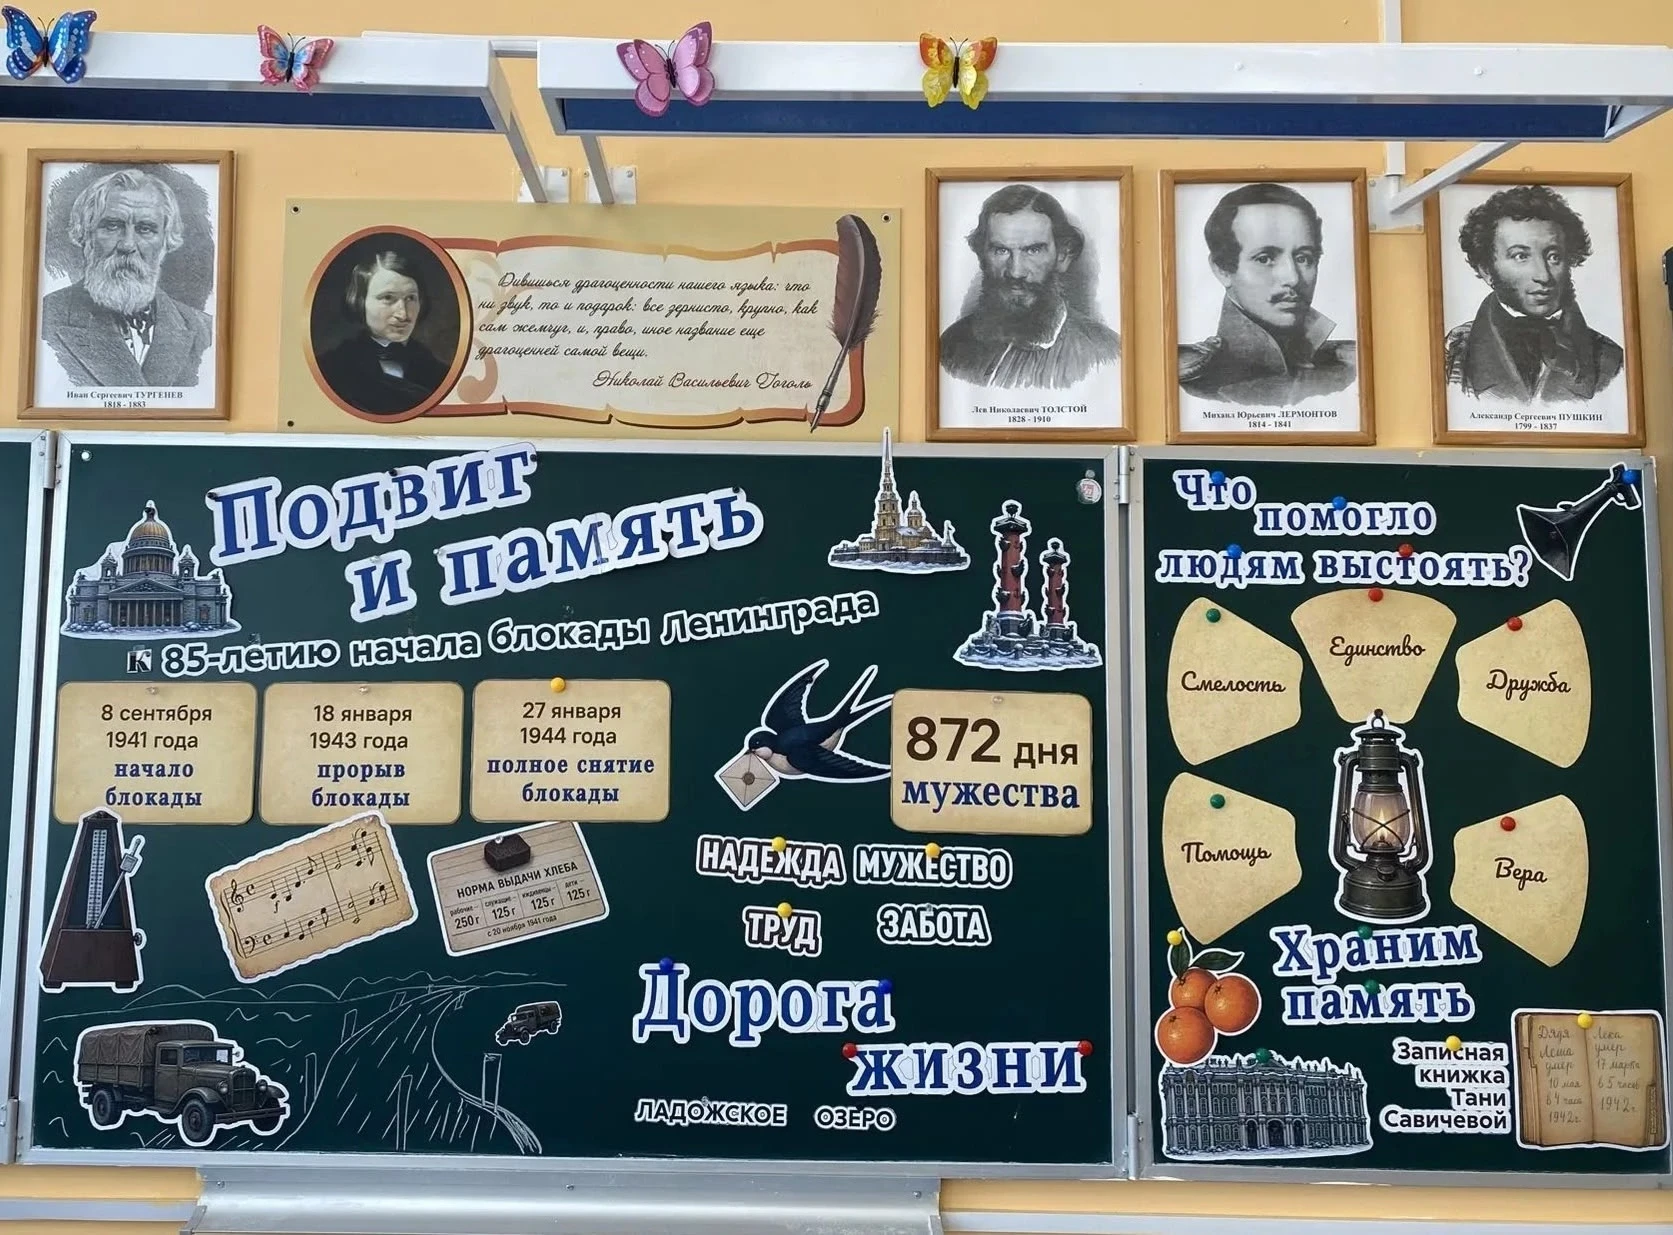 Иван Сергеевич ТУРГЕНЕВ
1818 - 1883
Дивишься драгоценности нашего языка: что
ни звук, то и подарок: все зернисто, крупно, как
сам жемчуг, и, право, иное название еще
драгоценней самой вещи.
Николай Васильевич Гоголь
Лев Николаевич ТОЛСТОЙ
1828 - 1910
Михаил Юрьевич ЛЕРМОНТОВ
1814 - 1841
Александр Сергеевич ПУШКИН
1799 - 1837
Подвиг
и память
к 85-летию начала блокады Ленинграда
8 сентября
1941 года
начало
блокады
18 января
1943 года
прорыв
блокады
27 января
1944 года
полное снятие
блокады
872 дня
мужества
НОРМА ВЫДАЧИ ХЛЕБА
рабочие 250 г
служащие 125 г
иждивенцы 125 г
дети 125 г
с 20 ноября 1941 года
НАДЕЖДА МУЖЕСТВО
ТРУД ЗАБОТА
Дорога
жизни
ЛАДОЖСКОЕ ОЗЕРО
Что
помогло
людям выстоять?
Смелость
Единство
Дружба
Помощь
Вера
Храним
память
Записная
книжка
Тани
Савичевой
Дядя
Леша
умер
10 мая
в 4 часа
1942г.
Лека
умер
17 марта
в 5 часов
1942г.